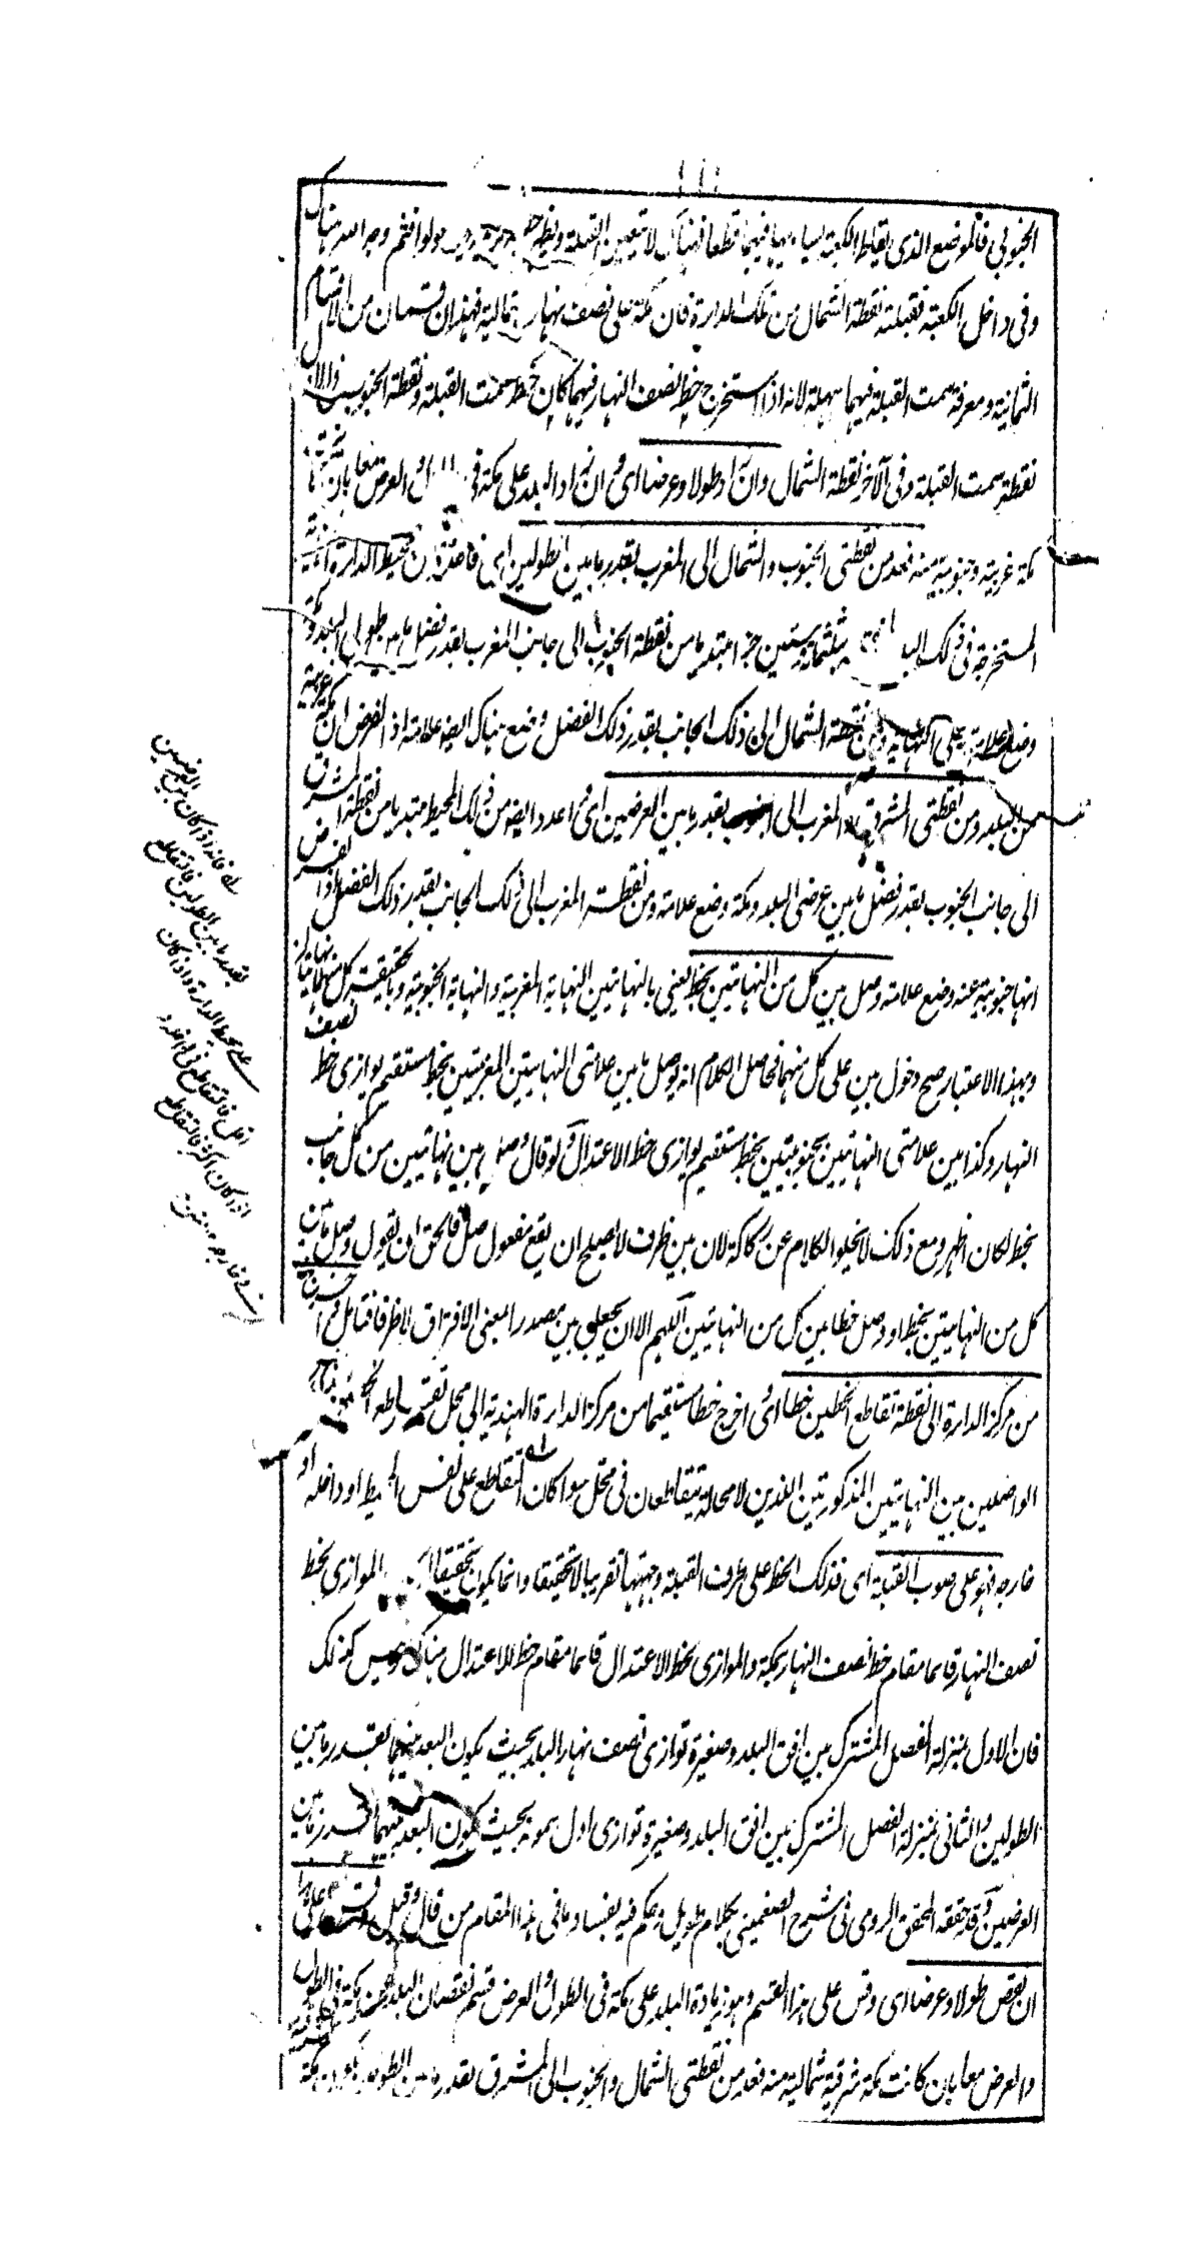 الجنوبى فالموضع الذى يقاطر الكعبة فيها قطعا فهناك لا تتعين القبلة ونظيره تولوا فثم وجه الله هناك
وفى داخل الكعبة فقبلته نقطة الشمال من تلك الدارة فان مكة على نصف نهار شمالية فهذان قسمان من الاقسام
الثمانية ومعرفة سمت القبلة فيهما سهلة لانه اذا استخرج خط نصف النهار فيهما كان خط سمت القبلة ونقطة الجنوب فى الاول
نقطة سمت القبلة وفى الآخر نقطة الشمال وان زاد طولا وعرضا اى وان زاد البلد على مكة فى الطول والعرض معا بان تكون
مكة غربية وجنوبية منه فعد من نقطتى الجنوب والشمال الى المغرب بقدر ما بين الطولين اى فاعدد من محيط الدارة
المستخرجة فى ذلك البلد بثلثمائة وستين جزء مبتدئا من نقطة الجنوب الى جانب المغرب بقدر فضل ما بين طولى البلد ومكة
وضع علامة على النهاية ومن نقطة الشمال الى ذلك الجانب بقدر ذلك الفضل وضع هناك ايضا علامة اذ الفرض ان مكة غربية
عن البلد ومن نقطتى المشرق والمغرب الى الجنوب بقدر ما بين العرضين اى واعدد ايضا من ذلك المحيط مبتدئا من نقطة المشرق
الى جانب الجنوب بقدر فضل ما بين عرضى البلد ومكة وضع علامة ومن نقطة المغرب الى ذلك الجانب بقدر ذلك الفضل اذ الفرض
انها جنوبية عنه وضع علامة وصل بين كل من النهايتين بخط يعنى بالنهايتين النهاية المغربية والنهاية الجنوبية وبالحقيقة كل منهما نهايتان
وبهذا الاعتبار صح دخول بين على كل منهما فحاصل الكلام انه يوصل ما بين علامتى النهايتين المغربيتين بخط مستقيم يوازى خط نصف
النهار وكذا بين علامتى النهايتين الجنوبيتين بخط مستقيم يوازى خط الاعتدال ولو قال وصل بين نهايتين من كل جانب
بخط لكان اظهر ومع ذلك لا يخلو الكلام عن ركاكة لان بين ظرف لا يصلح ان يقع مفعول صل فالحق ان يقول وصل ما بين
كل من النهايتين بخط او وصل خطا بين كل من النهايتين اللهم الا ان يجعل بين مصدرا بمعنى الافتراق لا ظرفا فتامل
من مركز الدارة الى نقطة تقاطع الخطين خطا اى اخرج خطا مستقيما من مركز الدارة الهندية الى محل تقاطع الخطين
الواصلين بين النهايتين المذكورتين اللذين لا محالة يتقاطعان فى محل سواء كان التقاطع على نفس المحيط او داخله او
خارجه فهو على صوب القبلة اى فذلك الخط على طرف القبلة وجهتها تقريبا لا تحقيقا وانما يكون تحقيقا الموازى بخط
نصف النهار قائما مقام خط نصف النهار بمكة والموازى بخط الاعتدال قائما مقام خط الاعتدال هناك وليس كذلك
فان الاول بمنزلة الفصل المشترك بين افق البلد وصغيرة توازى نصف نهار البلد بحيث يكون البعد بينهما بقدر ما بين
الطولين والثانى بمنزلة الفصل المشترك بين افق البلد وصغيرة توازى اول سموته بحيث يكون البعد بينهما بقدر ما بين
العرضين وقد حققه المحقق الرومى فى شرح الچغمينى بكلام طويل وحكم فيه بفساد ما فى هذا المقام من قال وقيل وقس على هذا
ان نقص طولا وعرضا اى وقس على هذا القسم وهو زيادة البلد على مكة فى الطول والعرض قسم نقصان البلد عن مكة فى الطول
والعرض معا بان كانت مكة شرقية شمالية منه فعد من نقطتى الشمال والجنوب الى المشرق بقدر ما بين الطولين
فانه اذا كان ما بين العرضين
بقدر ما بين الطولين فالتقاطع
على محيط الدارة واذا كان
اقل فالتقاطع فى داخله و
اذا كان اكثر فالتقاطع
فى خارجه